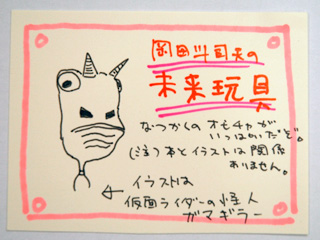 岡田斗司夫の
未来玩具
なつかしの オモチャが
いっぱいだぞ。
(注)本とイラストは関係
ありません。
イラストは
仮面ライダーの怪人
ガマギラー